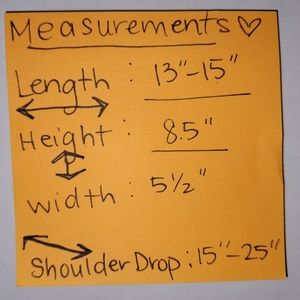 Measurements ♡
Length : 13"-15"
Height : 8.5"
width : 5½"
Shoulder Drop : 15"-25"